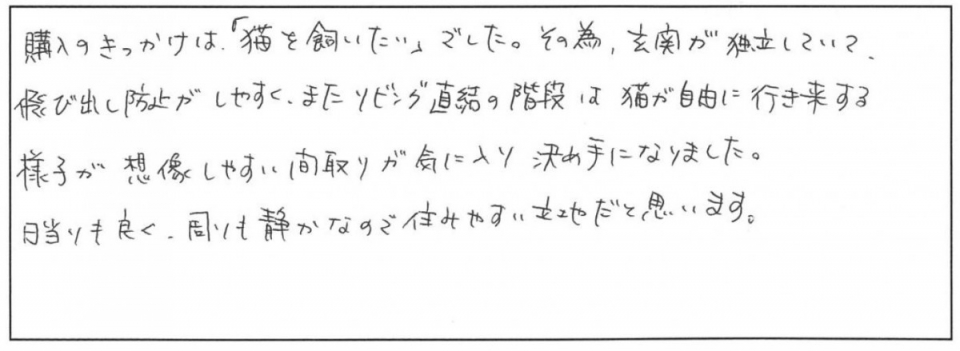 購入のきっかけは、「猫を飼いたい」でした。その為、玄関が独立していて、
飛び出し防止がしやすく、またリビング直結の階段は猫が自由に行き来する
様子が想像しやすい間取りが気に入り決め手になりました。
日当りも良く、周りも静かなので住みやすい立地だと思います。